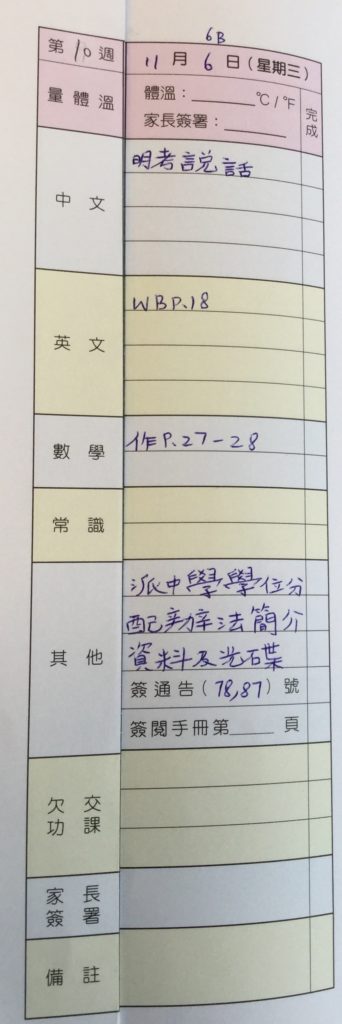 6B
第10週 11月6日(星期三)
量體溫 體溫:______℃/℉ 完成
家長簽署:______
中文 明考說話
英文 WBP.18
數學 作P.27-28
常識
其他 派中學學位分
配辦法簡介
資料及光碟
簽通告(78,87)號
簽閱手冊第____頁
欠交
功課
家長
簽署
備註